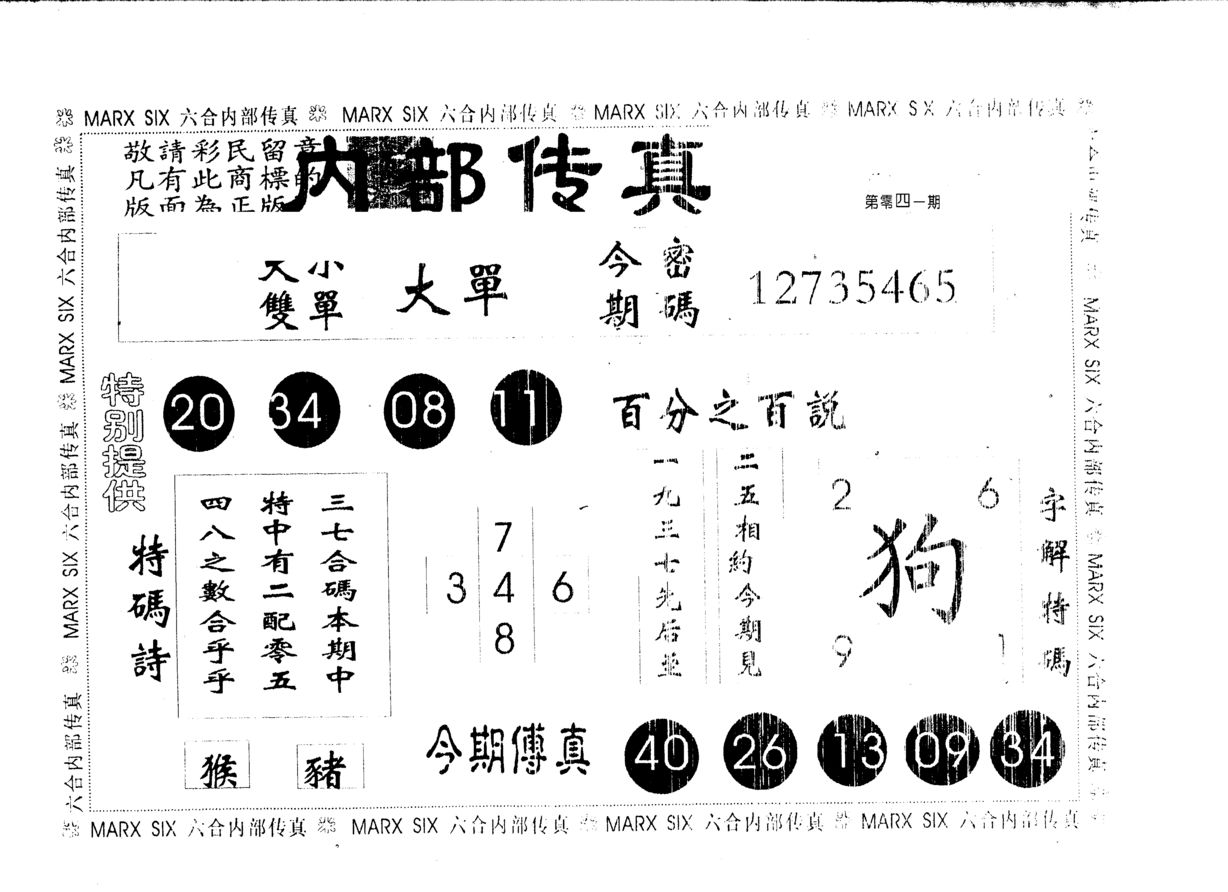 MARX SIX 六合内部传真 MARX SIX 六合内部传真 MARX SIX 六合内部传真 MARX SIX 六合内部传真
敬請彩民留意
凡有此商標的
版面為正版
内部传真
第零四一期
大小
雙單
大單
今期
密碼
12735465
特别提供
20 34 08 11
百分之百説
特碼詩
三七合碼本期中
特中有二配零五
四八之數合乎乎
7
3 4 6
8
二五相約今期見
一九三七先后並
2 6
狗
9 1
字解特碼
猴 豬
今期傳真
40 26 13 09 34
MARX SIX 六合内部传真 MARX SIX 六合内部传真 MARX SIX 六合内部传真 MARX SIX 六合内部传真
六合内部传真 MARX SIX 六合内部传真 MARX SIX 六合内部传真
MARX SIX 六合内部传真 MARX SIX 六合内部传真